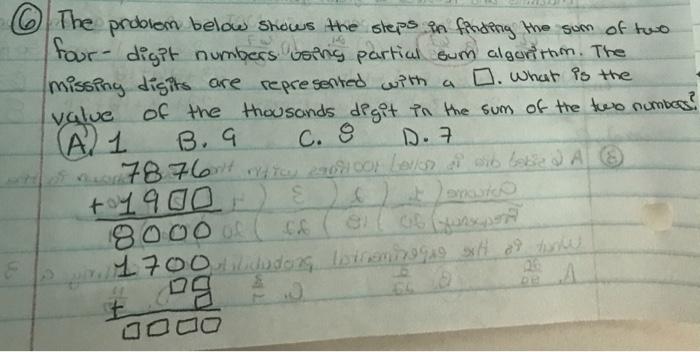 6 The problem below shows the steps in finding the sum of two
four-digit numbers using partial sum algorithm. The
missing digits are represented with a □. What is the
value of the thousands digit in the sum of the two numbers?
A. 1 B. 9 C. 8 D. 7
7876
+ 19□□
8000
1700
□□
+ □
□□□□